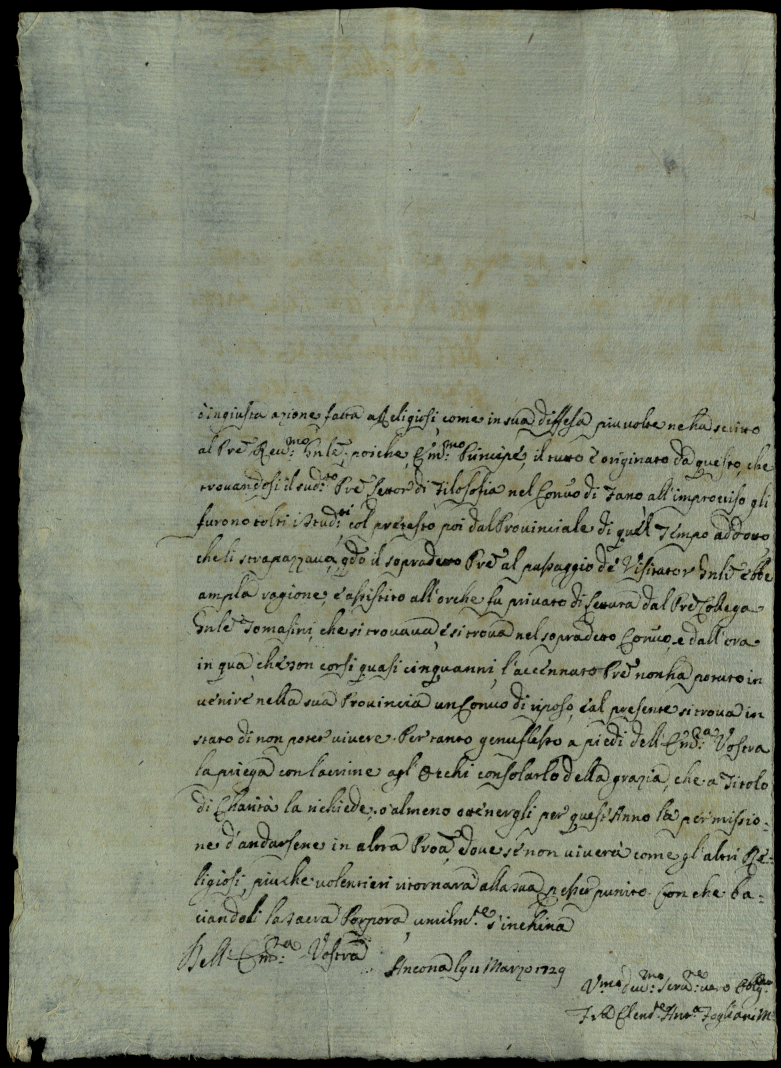 d'ingiusta azione fatta a Religiosi, come in sua diffesa piu volte ne ha scritto
al Pre Reumo: Gnle; poiche, Emmo: Principe, il tutto è originato da questo, che
trovandosi il sudto: Pre Lettor di Filosofia nel Conuo di Fano, all'improviso gli
furono tolti i Studti: col pretesto poi dal Provinciale di quel Tempo addotto
che li strapazzaua, qdo il sopradetto Pre al passaggio de' Visitator Gnle ebbe
ampla ragione, è assistito all'or che fu privato di Lettura dal Pre Collega
Gnle Tomasini, che si trouaua, è si troua nel sopradetto Conuo, e dall'ora
in quà, che son corsi quasi cinqu'anni, l'accennato Pre non ha potuto in
uenire nella sua Provincia un Conuo di riposo, è al presente si troua in
stato di non poter vivere. Per tanto genuflesso a piedi dell'Emza: Vostra
la priega con lacrime agl'Occhi consolarlo della grazia, che a Titolo
di Charità la richiede, o almeno ottenergli per quest'Anno la permissio-
ne d'andarsene in altra Proa, doue se non viverà come gl'altri Re-
ligiosi, piu che uolentieri ritornarà alla sua p esser punito. Con che ba-
ciandoli la sacra Porpora, umilmte: s'inchina
Dell'Emza: Vostra
Ancona ly 11 Marzo 1729
Vmo deumo: serure: uero Obbligo
Fra Antª Fogliari